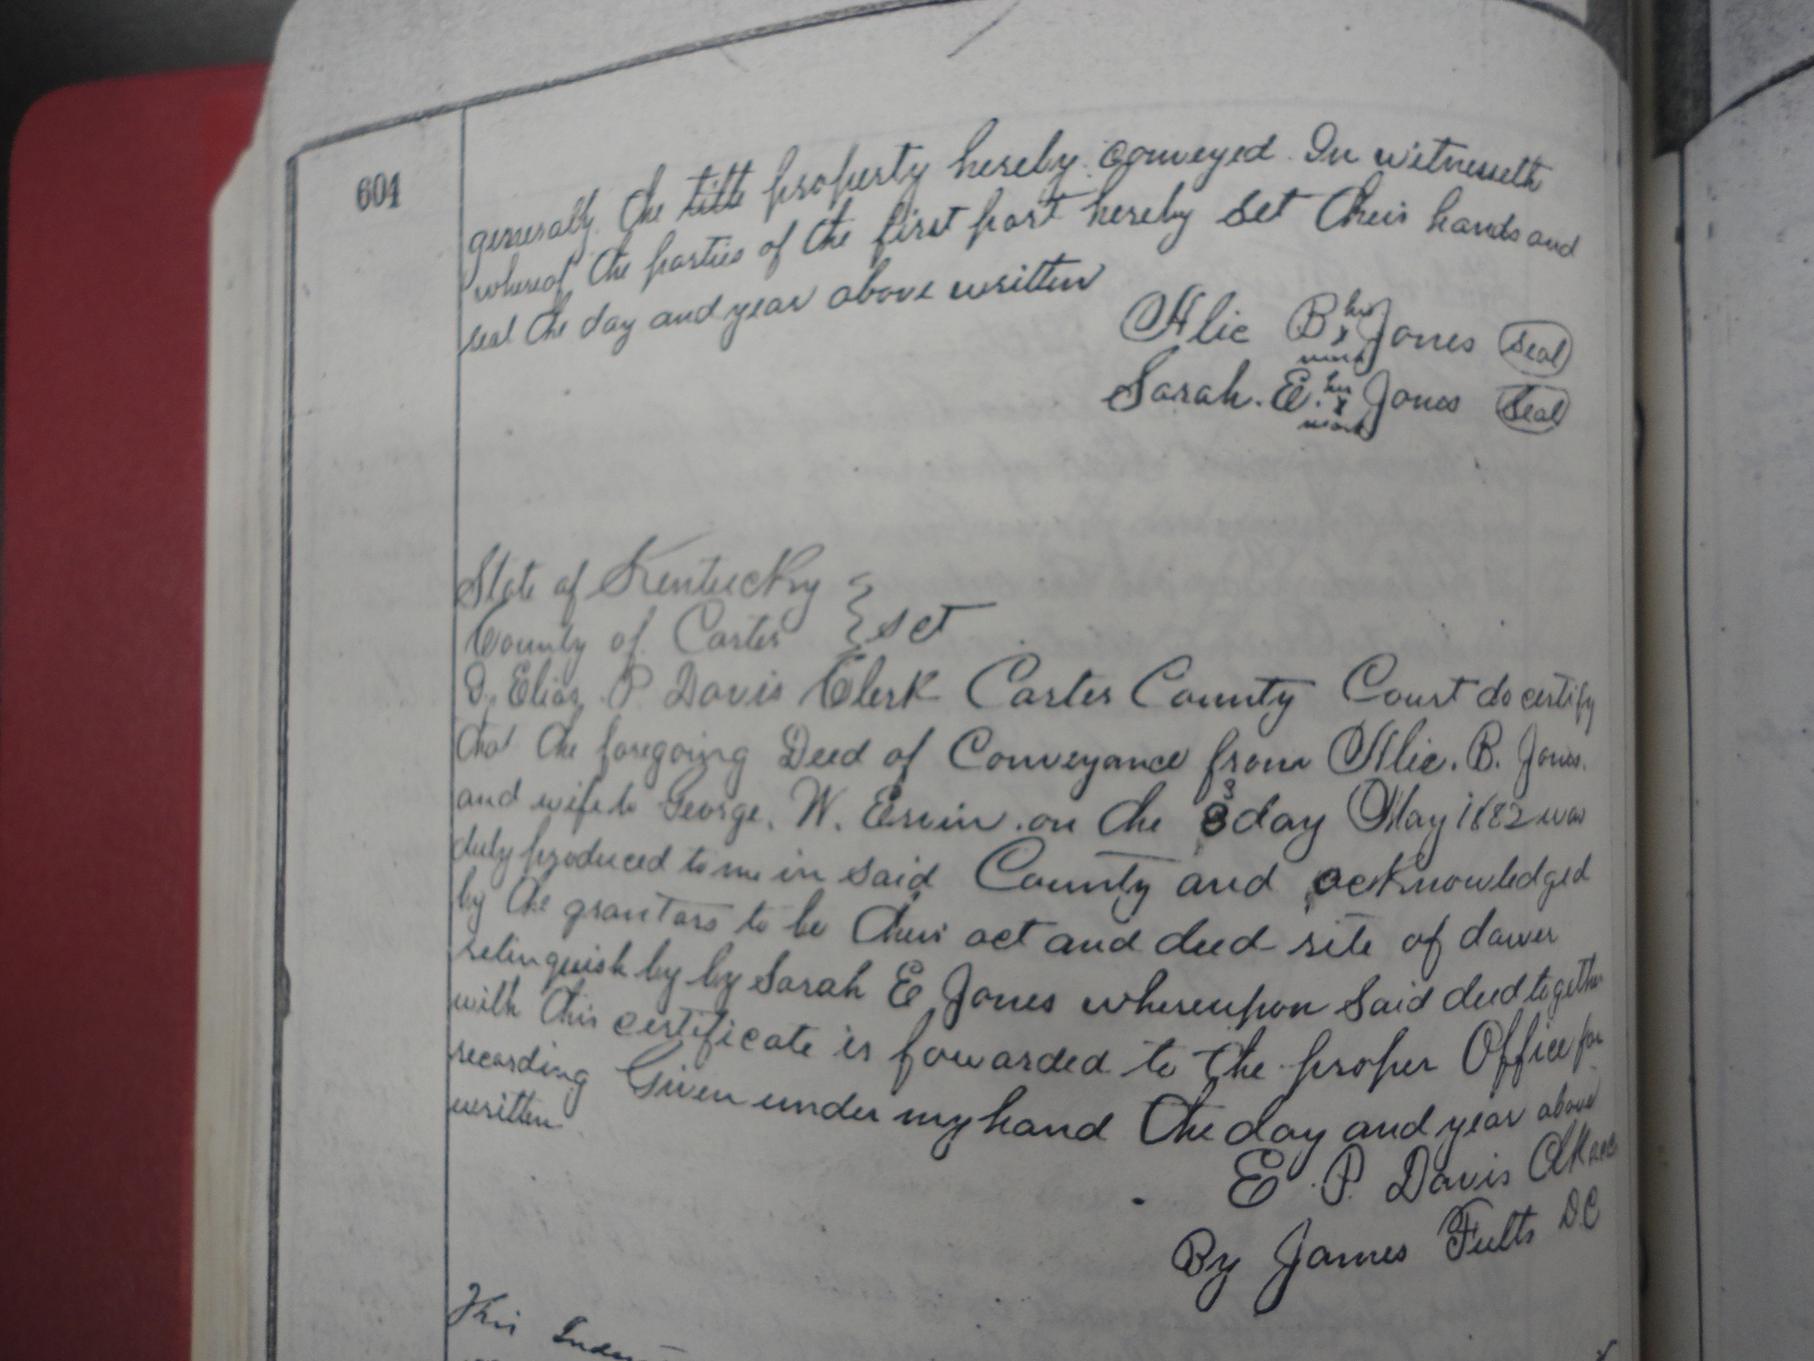 601
generally the title property hereby conveyed. In witnesseth
whereof the parties of the first part hereby set their hands and
seal the day and year above written
his
Alic B x Jones Seal
mark
her
Sarah. E. x Jones Seal
mark
State of Kentucky
County of Carter } sct
I, Elias P. Davis Clerk Carter County Court do certify
that the foregoing Deed of Conveyance from Alic. B. Jones.
and wife to George. W. Ervin. on the 3 day May 1882 was
duly produced to me in said County and acknowledged
by the grantors to be their act and deed rite of dower
relinquish by by Sarah E Jones whereupon said deed together
with this certificate is fowarded to the proper Office for
recording Given under my hand the day and year above
written
E. P. Davis Clk
By James Fults D.C
This